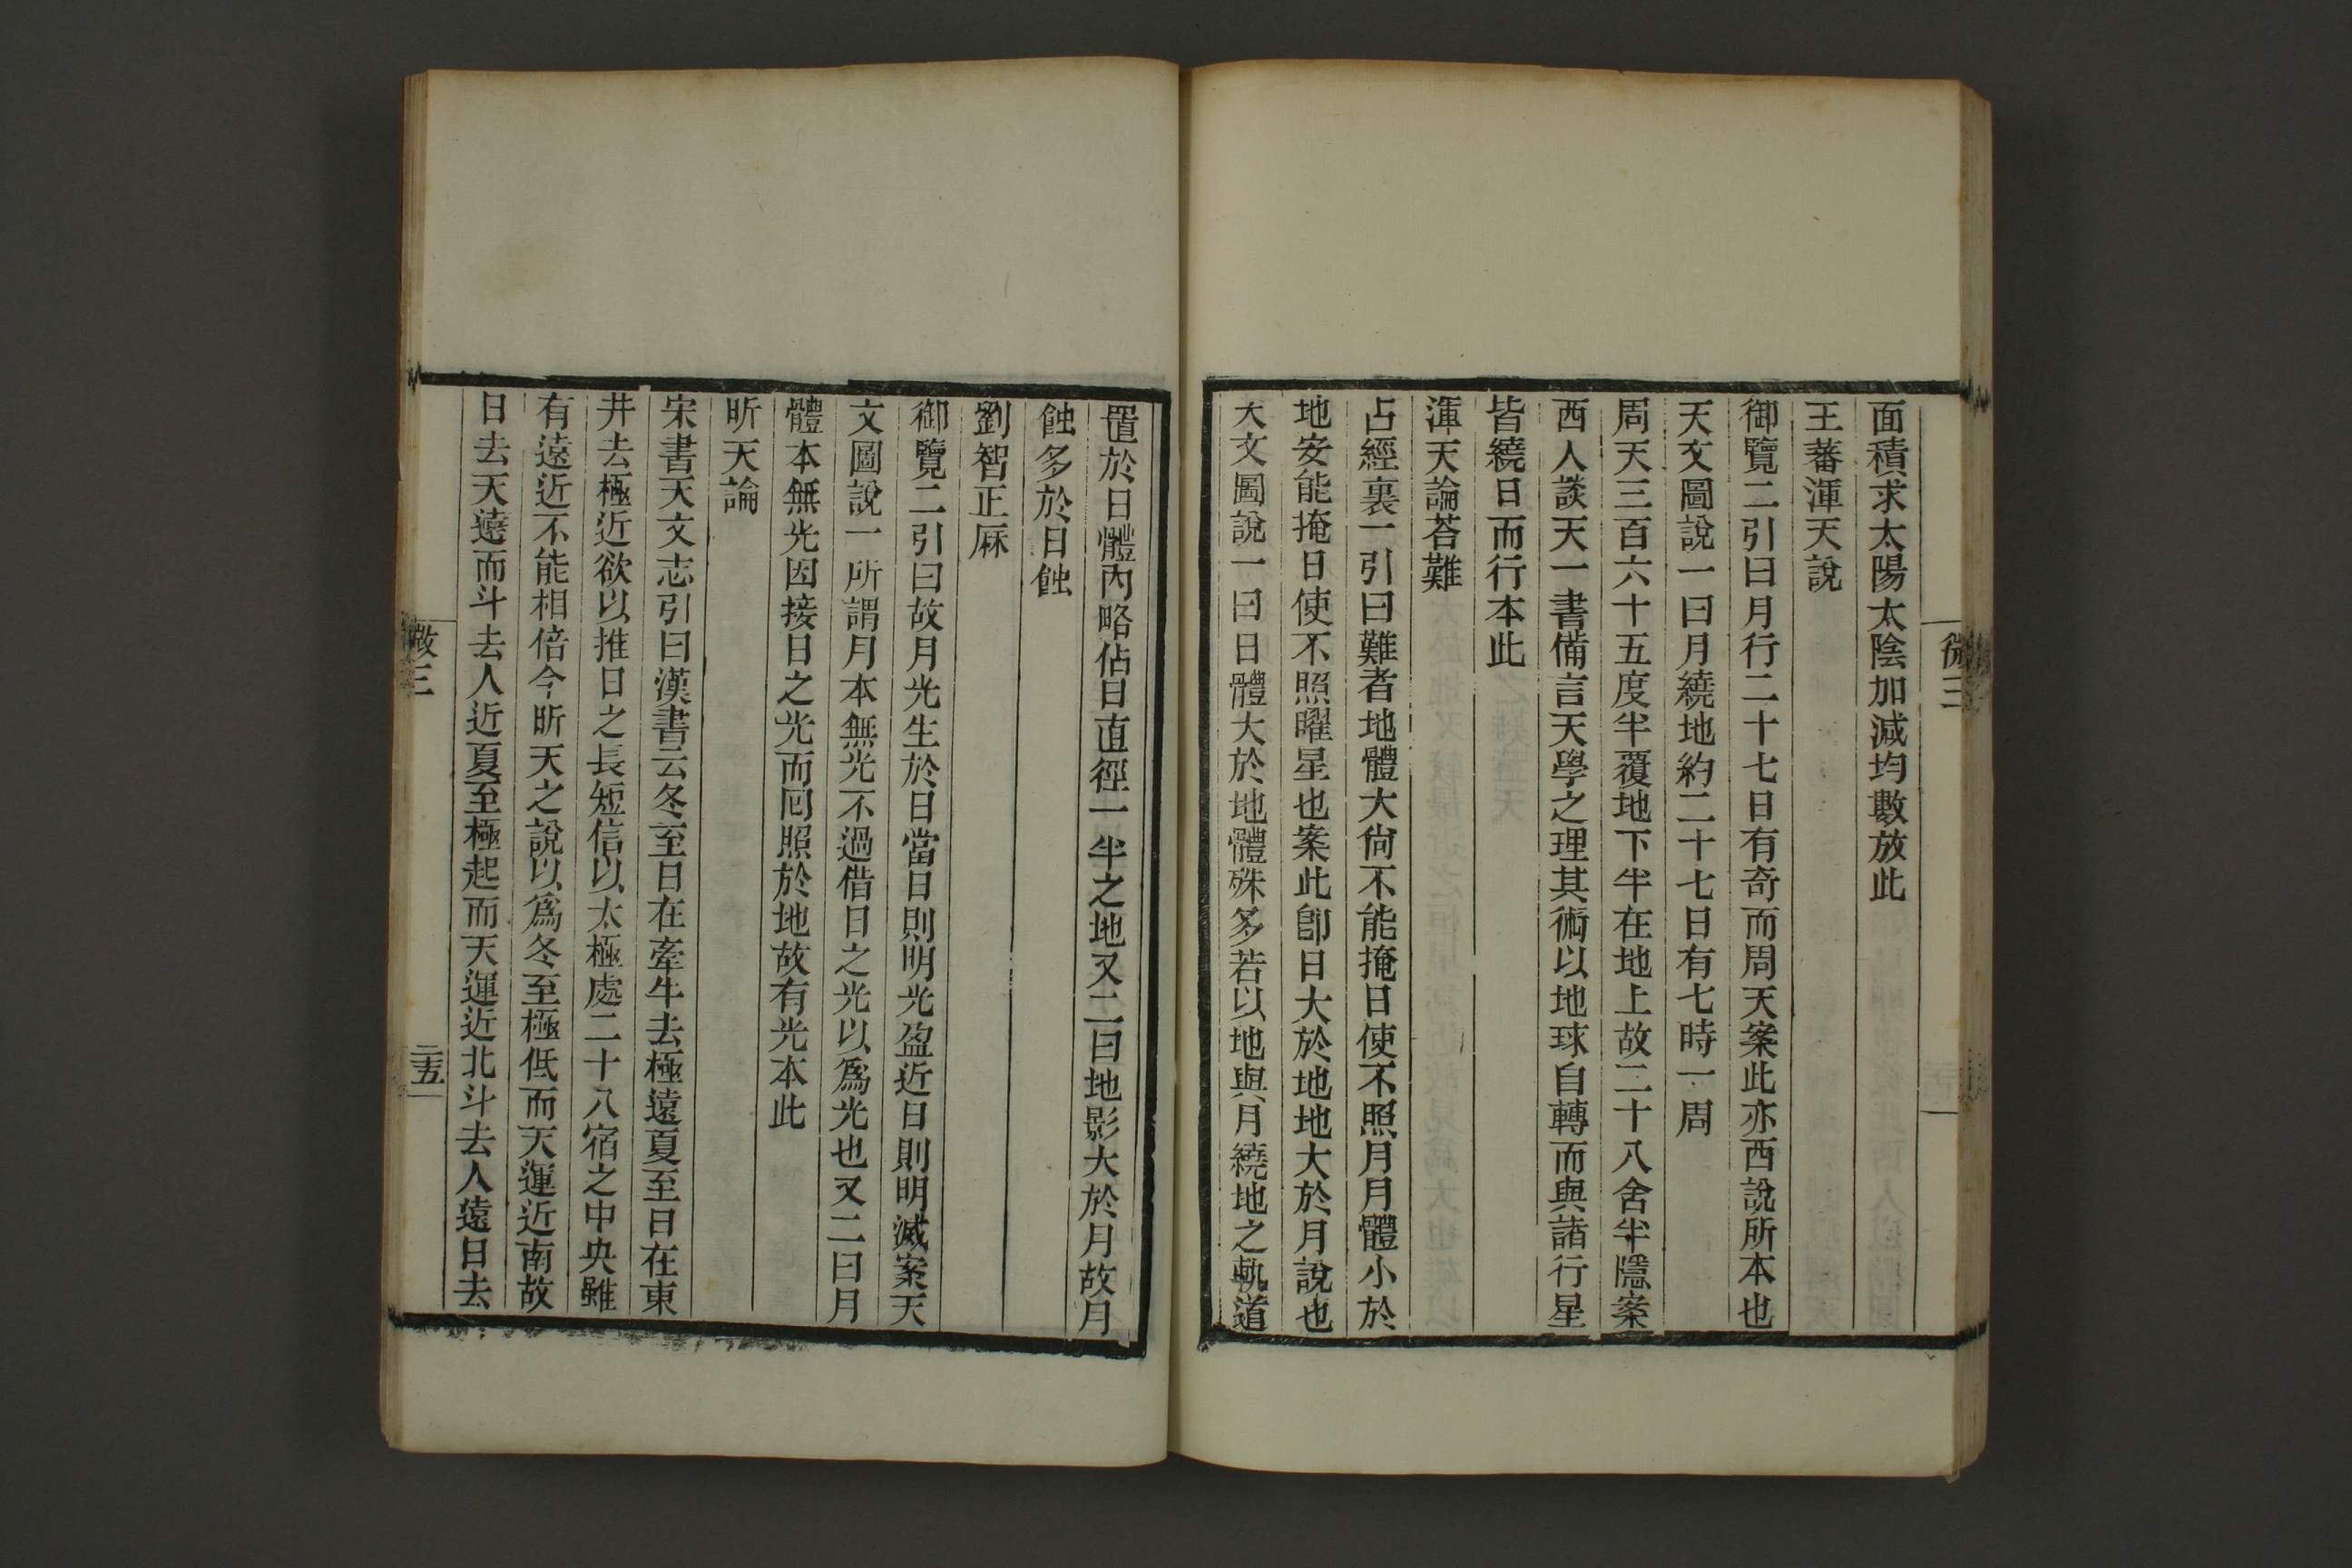 面積求太陽太陰加減均數放此
王蕃渾天說
御覽二引曰月行二十七日有奇而周天案此亦西說所本也
天文圖說一曰月繞地約二十七日有七時一周
周天三百六十五度半覆地下半在地上故二十八舍半隱案
西人談天一書備言天學之理其術以地球自轉而與諸行星
皆繞日而行本此
渾天論荅難
占經裏一引曰難者地體大尙不能掩日使不照月月體小於
地安能掩日使不照曜星也案此卽日大於地地大於月說也
天文圖說一曰日體大於地體殊多若以地與月繞地之軌道
置於日體內略佔日直徑一半之地又二曰地影大於月故月
蝕多於日蝕
劉智正厤
御覽二引曰故月光生於日當日則明光盈近日則明滅案天
文圖說一所謂月本無光不過借日之光以爲光也又二曰月
體本無光因接日之光而囘照於地故有光本此
昕天論
宋書天文志引曰漢書云冬至日在牽牛去極遠夏至日在東
井去極近欲以推日之長短信以太極處二十八宿之中央雖
有遠近不能相倍今昕天之說以爲冬至極低而天運近南故
日去天遠而斗去人近夏至極起而天運近北斗去人遠日去
三
二五